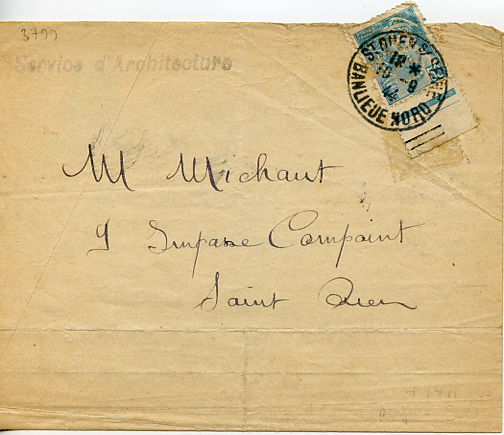 3799
Service d'Architecture
ST OUEN S. SEINE
18 *
BANLIEUE NORD
M Michaut
9 Impasse Compoint
Saint Ouen